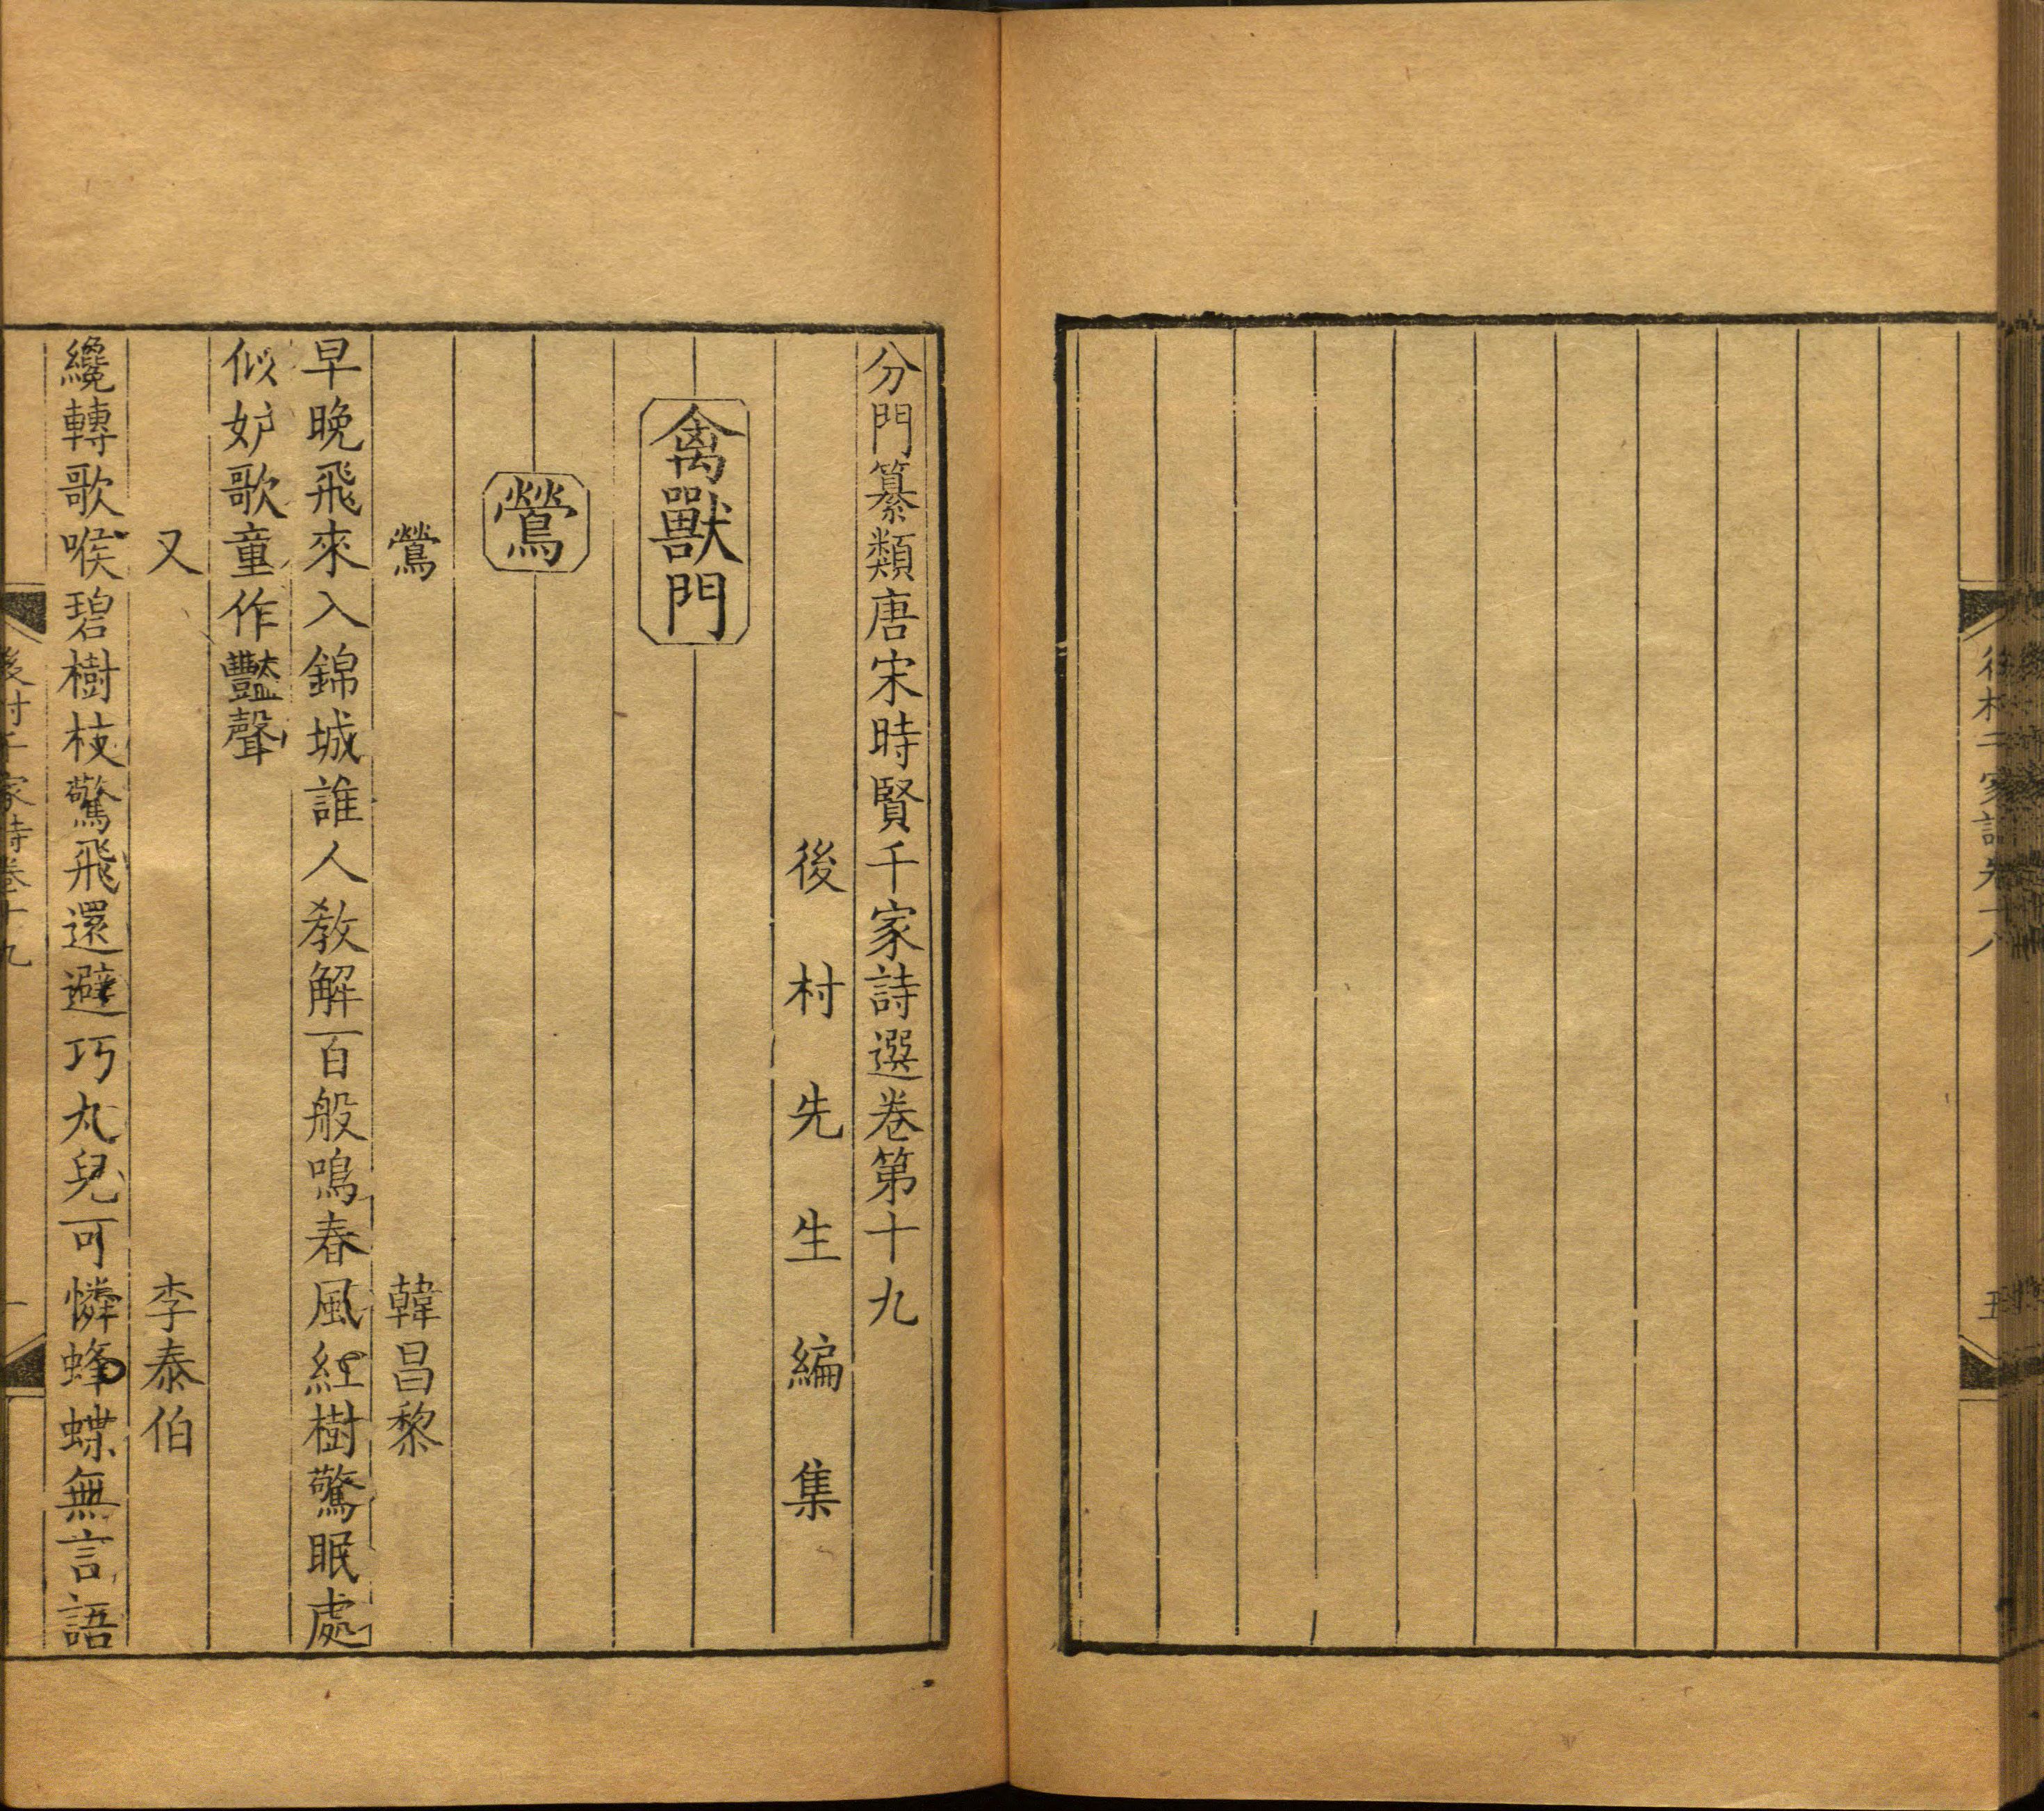 分門纂類唐宋時賢千家詩選卷第十九
後村先生編集
禽獸門
鶯
鶯　韓昌黎
早晚飛來入錦城誰人教解百般鳴春風紅樹驚眠處
似妒歌童作豔聲
又　李泰伯
纔轉歌喉碧樹枝驚飛還避巧丸兒可憐蜂蝶無言語
後村千家詩卷十九
一